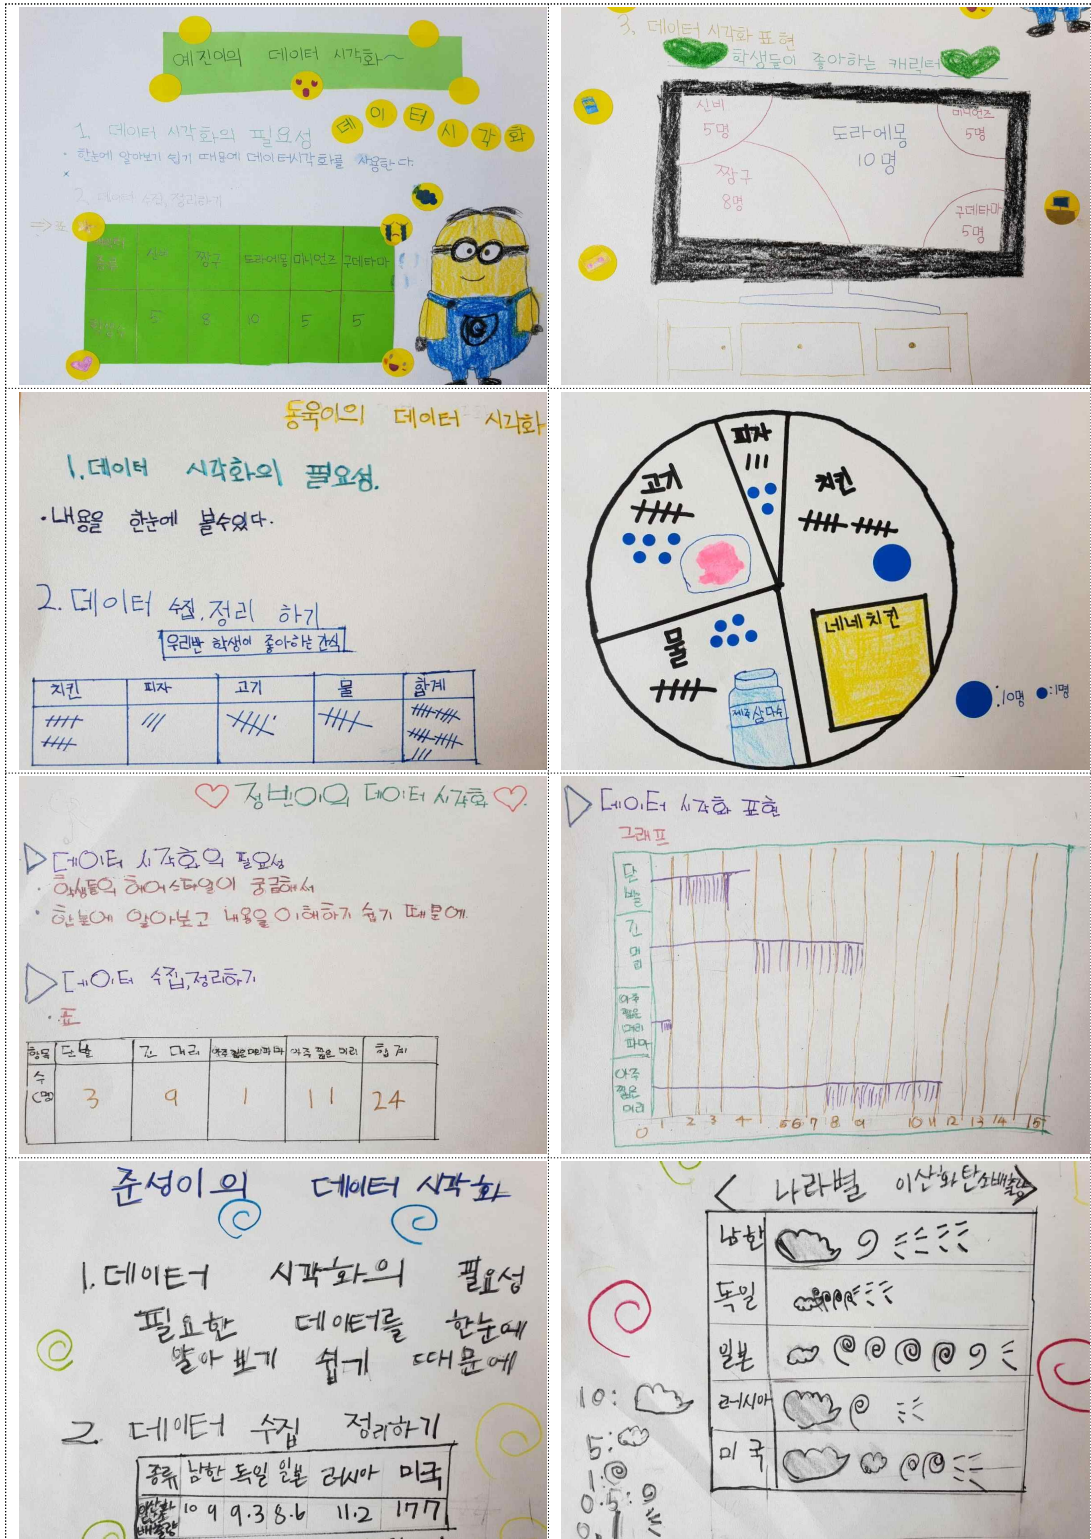 예진이의 데이터 시각화~
데이터시각화
1. 데이터 시각화의 필요성
· 한눈에 알아보기 쉽기 때문에 데이터시각화를 사용한다.
2. 데이터 수집, 정리하기
짱구 도라에몽 미니언즈 구데타마
5 8 10 5 5
3. 데이터 시각화 표현
학생들이 좋아하는 캐릭터
신비
5명
미니언즈
5명
도라에몽
10명
짱구
8명
구데타마
5명
동욱이의 데이터 시각화
1. 데이터 시각화의 필요성.
· 내용을 한눈에 볼수있다.
2. 데이터 수집, 정리 하기
우리반 학생이 좋아하는 간식
치킨 피자 고기 물 합계
피자
고기
치킨
물
네네치킨
제주삼다수
:10명 :1명
정빈이의 데이터 시각화
데이터 시각화의 필요성
· 학생들의 헤어스타일이 궁금해서
· 한눈에 알아보고 내용을 이해하기 쉽기 때문에
데이터 수집, 정리하기
· 표
항목 단발 긴 머리 아주 짧은 머리 파마 아주 짧은 머리 합계
수(명 3 9 1 11 24
데이터 시각화 표현
그래프
단발
긴머리
아주짧은머리파마
아주짧은머리
0 1 2 3 4 5 6 7 8 9 10 11 12 13 14 15
준성이의 데이터 시각화
1. 데이터 시각화의 필요성
필요한 데이터를 한눈에
알아 보기 쉽기 때문에
2. 데이터 수집 정리하기
종류 남한 독일 일본 러시아 미국
배출량 9.3 8.6 11.2 17.7
<나라별 이산화탄소배출량>
남한
독일
일본
러시아
미국
10:
5:
1:
0.5: